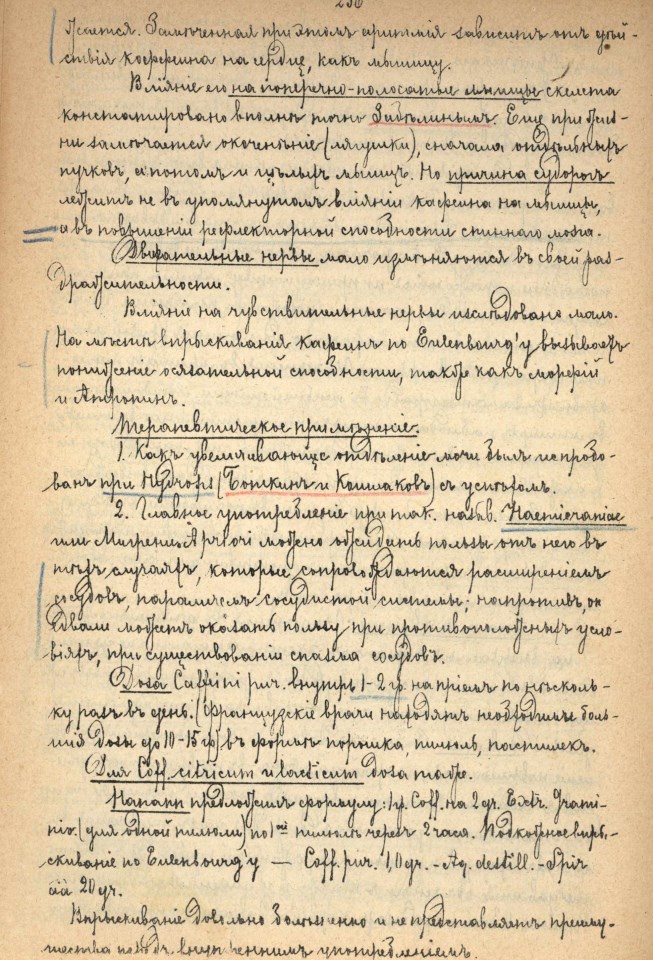 жается. Замѣченная при этомъ аритмія зависитъ отъ дѣй-
ствія кофеина на сердце, какъ мышцу.
Вліяніе его на поперечно-полосатые мышцы скелета
констатировано вполнѣ точно Забѣлинымъ. Еще при жиз-
ни замѣчается окоченѣніе (лягушки), сначала отдѣльныхъ
пучковъ, а потомъ и цѣлыхъ мышцъ. Но причина судорогъ
лежитъ не въ упомянутомъ вліяніи кафеина на мышцы,
а въ повышеніи рефлекторной способности спиннаго мозга.
Двигательные нервы мало измѣняются въ своей раз-
дражительности.
Вліяніе на чувствительные нервы изслѣдовано мало.
На мѣстѣ впрыскиванія кафеинъ по Eulenbourg'у вызываетъ
пониженіе осязательной способности, также какъ морфій
и Атропинъ.
Терапевтическое примѣненіе.
1. Какъ увеличивающее отдѣленіе мочи былъ испробо-
ванъ при Hydrops (Боткинъ и Кошлаковъ) съ успѣхомъ.
2. Главное употребленіе при так. назыв. Haemicraniae
или Мигрени. Apriori можно ожидать пользы отъ него въ
тѣхъ случаяхъ, которые сопровождаются расширеніемъ
сосудовъ, параличемъ сосудистой системы; напротивъ, он
едвали можетъ оказать пользу при противоположныхъ усло-
віяхъ, при существованіи спазма сосудовъ.
Доза Caffeini pur. внутрь 1-2 гр. на пріемъ по нѣсколь-
ку разъ въ день. (Французскіе врачи находятъ необходимые боль-
шія дозы до 10-15 гр) въ формѣ порошка, пилюль, пастилекъ.
Для Coff. citricum и lacticum доза таже.
Напапп предложилъ формулу: 1 gr. Coff. на 2 gr. Extr. Grami-
nis. (для одной пилюли) по 1ой пилюлѣ черезъ 2 часа. Подкожное впры-
скиваніе по Eulenbourg'у — Coff. pur. 1,0 gr. - Aq. destill. - Spir
āā 20 gr.
Впрыскиваніе довольно болѣзненно и не представляетъ преиму-
щества передъ внутреннимъ употребленіемъ.